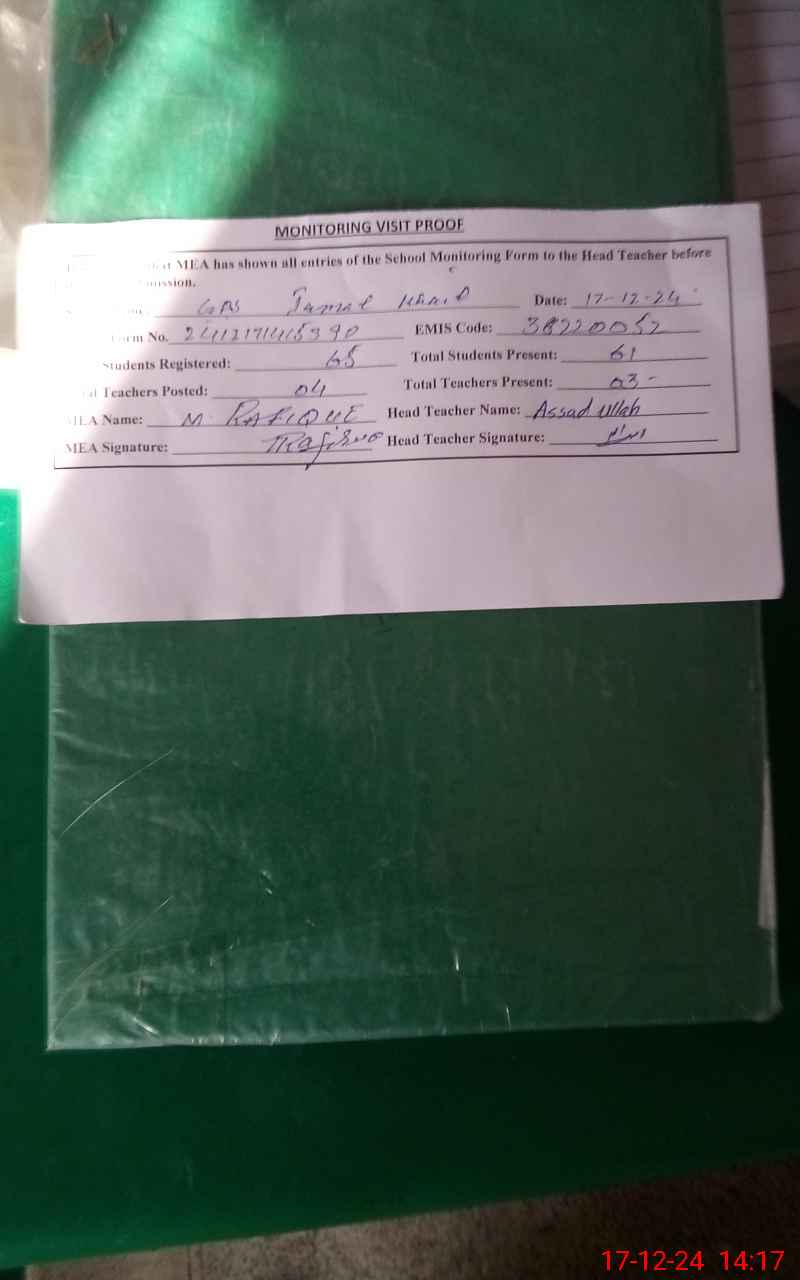 MONITORING VISIT PROOF
MEA has shown all entries of the School Monitoring Form to the Head Teacher before
Date: 17-12-24
Form No. EMIS Code: 38220052
Students Registered: 65 Total Students Present: 61
Teachers Posted: 04 Total Teachers Present: 03-
Name: M. RAFIQUE Head Teacher Name: Assad ullah
MEA Signature: Head Teacher Signature:
17-12-24 14:17